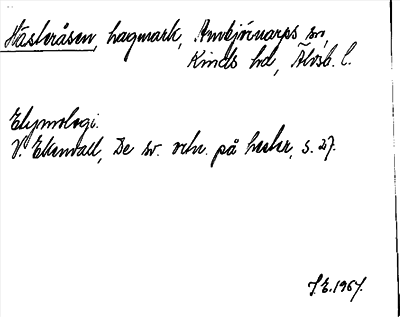 Hästeråsen, hagmark, Ambjörnarps sn,
Kinds hd, Älvsb. l.
Etymologi.
V. Ekenvall, De sv. ortn. på hester, s. 27.
J.E. 1967.